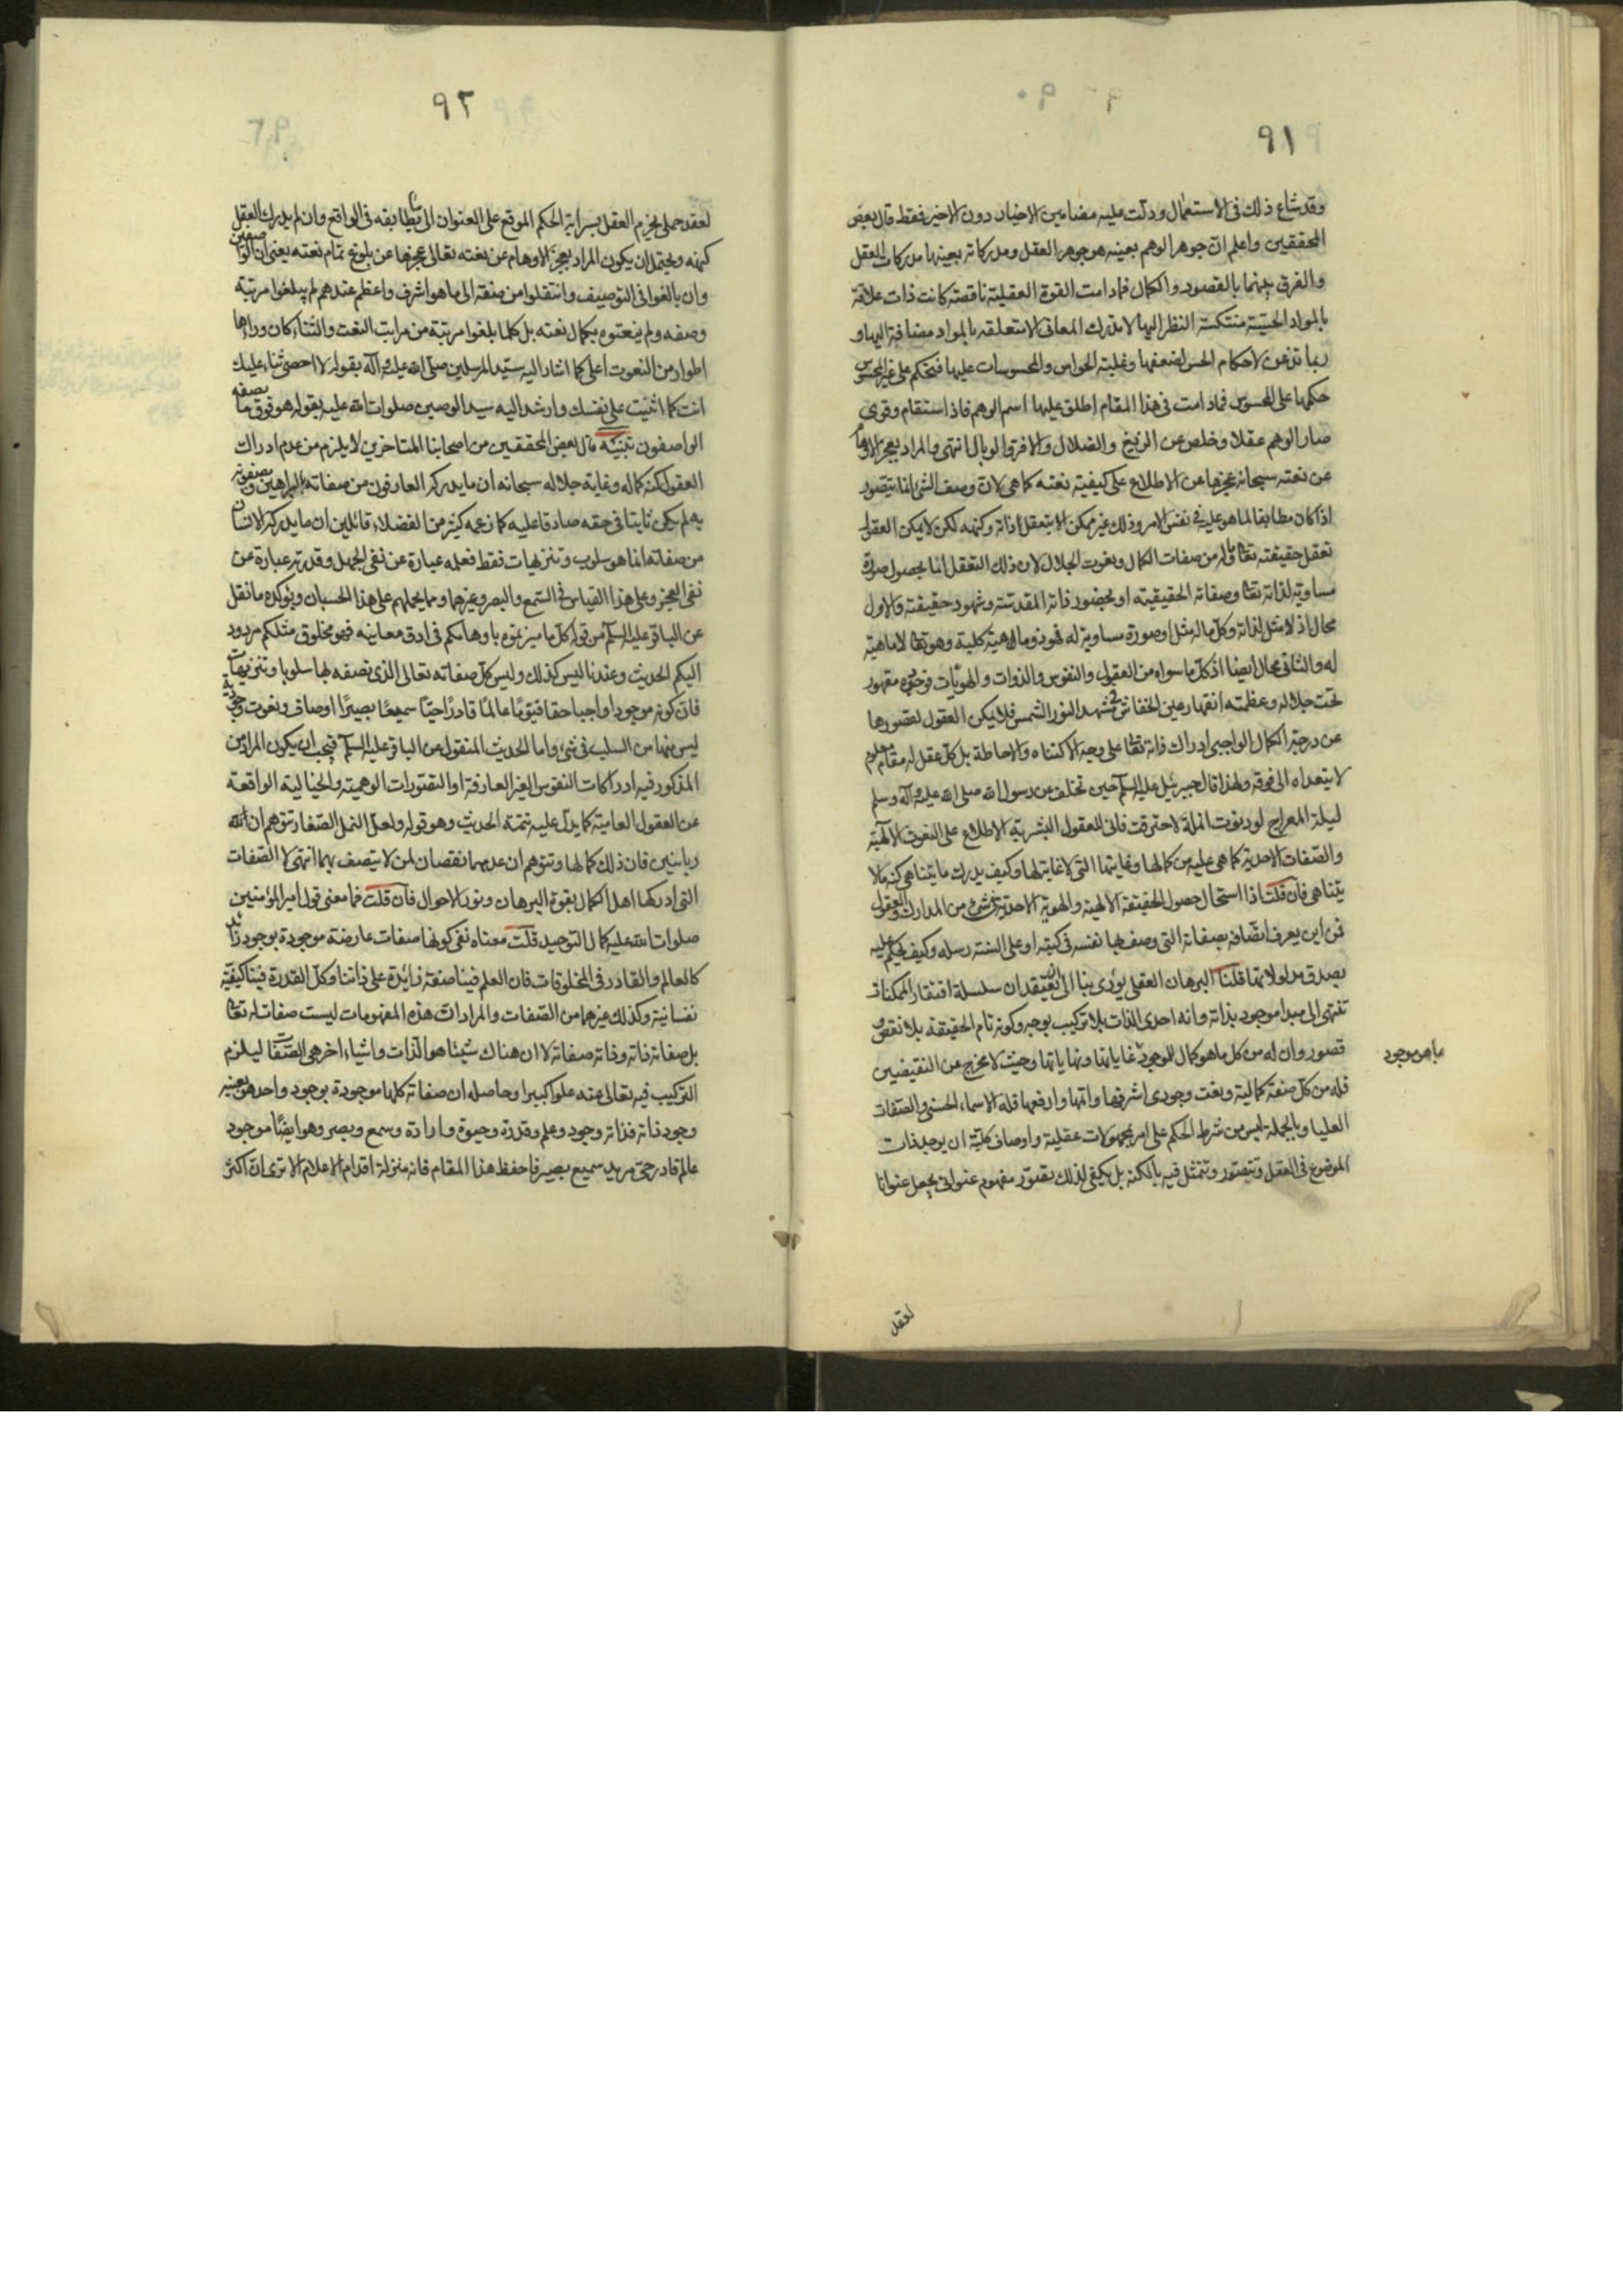 ٩١
وقد شاع ذلك فى الاستعمال ودلت عليه مضامين الاخبار دون الاخير فقط قال بعض
المحققين واعلم ان جوهر الوهم بعينه هو جوهر العقل ومدركاته بعينها مدركات العقل
والفرق بينهما بالقصور والكمال فمادامت القوة العقلية ناقصة كانت ذات علاقة
بالمواد الحسية منتكسة النظر اليها لا تدرك المعانى الا متعلقه بالمواد مضافة اليها و
ربما تذعن لاحكام الحس لضعفها وغلبة الحواس والمحسوسات عليها فتحكم على غير المحسوس
حكمها على المحسوس فمادامت فى هذا المقام اطلق عليها اسم الوهم فاذا استقام وقوى
صار الوهم عقلا وخلص عن الزيغ والضلال والافة والوبال انتهى والمراد بعجز الاوهام
عن نعته سبحانه عجزها عن الاطلاع على كيفية نعته كما هى لان وصف الشئ انما يتصور
اذا كان مطابقا لما هو عليه فى نفس الامر وذلك غير ممكن الا بتعقل ذاته وكنهه لكن لا يمكن العقول
تعقل حقيقته تعالى وماله من صفات الكمال ونعوت الجلال لان ذلك التعقل اما بحصول صورة
مساوية لذاته تعالى وصفاته الحقيقيه او بحضور ذاته المقدسة وشهود حقيقته والاول
محال اذ لا مثل لذاته وكل ماله مثل او صورة مساوية له فهو ذو ماهية كلية وهو تعالى لا ماهية
له والثانى محال ايضا اذ كل ما سواه من العقول والنفوس والذوات والهويات فوجوده مقهور
تحت جلاله وعظمته انقهار عين الخفاش فى مشهد النور الشمس فلا يمكن العقول لقصورها
عن درجة الكمال الواجبى ادراك ذاته تعالى على وجه الاكتناه والاحاطة بل كل عقل له مقام معلوم
لا يتعداه الى فوقه ولهذا قال جبرئيل عليه السلام حين تخلف عن رسول الله صلى الله عليه وآله وسلم
ليلة المعراج لو دنوت انملة لاحترقت فانى للعقول البشرية الاطلاع على النعوت الالهية
والصفات الاحدية كما هى عليه من كمالها وغايتها التى لا غاية لها وكيف يدرك ما يتناهى كنه ما لا
يتناهى فان قلت اذا استحال حصول الحقيقة الالهية والهوية الاحدية فى شئ من المدارك والعقول
فمن اين يعرف اتصافه بصفاته التى وصف بها نفسه فى كتبه او على السنة رسله وكيف يحكم عليه
بصدق مدلولاتها قلنا البرهان العقلى يؤدى بنا الى ان نعتقد ان سلسلة افتقار الممكنات
تنتهى الى مبدا موجود بذاته وانه احدى الذات بلا تركيب بوجه وكونه تام الحقيقة بلا نقص و
قصور وان له من كل ما هو كمال للموجود غاياتها ونهاياتها وحيث لا مخرج عن النقيضين
بما هو موجود
فله من كل صفة كمالية ونعت وجودى اشرفها واتمها وارفعها فله الاسماء الحسنى والصفات
العليا وبالجملة ليس من شرط الحكم على امر بمحمولات عقلية واوصاف كلية ان يوجد ذات
الموضوع فى العقل وتتصور وتتمثل فيه بالكنه بل يكفى لذلك تصور مفهوم عنوانى يجعل عنوانا
لعقد
٩٢
لعقد حملى يجزم العقل بسراية الحكم الموقع على العنوان الى ما يطابقه فى الواقع وان لم يدرك العقل
كنهه ويحتمل ان يكون المراد بعجز الاوهام عن نعته تعالى عجزها عن بلوغ تمام نعته يعنى ان الواصفين
وان بالغوا فى التوصيف وانتقلوا من صفة الى ما هو اشرف واعظم عندهم لم يبلغوا مرتبة
وصفه ولم ينعتوه بكمال نعته بل كلما بلغوا مرتبة من مراتب النعت والثناء كان وراءها
اطوار من النعوت اعلى كما اشار اليه سيد المرسلين صلى الله عليه وآله بقوله لا احصى ثناء عليك
انت كما اثنيت على نفسك وارشد اليه سيد الوصيين صلوات الله عليه بقوله هو فوق ما يصفه
الواصفون تنبيه قال بعض المحققين من اصحابنا المتاخرين لا يلزم من عدم ادراك
العقول كنه كماله وغاية جلاله سبحانه ان ما يدركه العارفون من صفاته بالبراهين ويصفونه
به لم يكن ثابتا فى حقه صادقا عليه كما زعمه كثير من الفضلاء قائلين ان ما يدركه الانسان
من صفاته انما هو سلوب وتنزيهات فقط فعلمه عبارة عن نفى الجهل وقدرته عبارة عن
نفى العجز وعلى هذا القياس فى السمع والبصر وغيرهما ومما يحملهم على هذا الحسبان ويؤكده ما نقل
عن الباقر عليه السلام من قوله كل ما ميزتموه باوهامكم فى ادق معانيه فهو مخلوق مثلكم مردود
اليكم الحديث وعندنا ليس كذلك وليس كل صفاته تعالى الذى نصفه بها سلوبا وتنزيهات
فان كونه موجودا واجبا حقا قيوما عالما قادرا حيا سميعا بصيرا اوصاف ونعوت وجودية
ليس شئ منها من السلب فى شئ واما الحديث المنقول عن الباقر عليه السلام فيجب ان يكون المراد من
المذكور فيه ادراكات النفوس الغير العارفة او التصورات الوهمية والخيالية الواقعة
عن العقول العامية كما يدل عليه تتمة الحديث وهو قوله ولعل النمل الصغار تتوهم ان لله
زبانيين فان ذلك كمالها وتتوهم ان عدمهما نقصان لمن لا يتصف بهما انتهى لا الصفات
التى ادركها اهل الكمال بقوة البرهان ونور الاحوال فان قلت فما معنى قول امير المؤمنين
صلوات الله عليه كمال التوحيد قلت معناه نفى كونها صفات عارضة موجودة بوجود زائد
كالعالم والقادر فى المخلوقات فان العلم فينا صفة زائدة على ذاتنا وكل القدرة فينا كيفية
نفسانية وكذلك غيرهما من الصفات والمراد ان هذه المفهومات ليست صفات له تعالى
بل صفاته ذاته وذاته صفاته لا ان هناك شيئا هو الذات واشياء اخر هى الصفات ليلزم
التركيب فيه تعالى عنه علوا كبيرا وحاصله ان صفاته كلها موجودة بوجود واحد هو بعينه
وجود ذاته فذاته وجود وعلم وقدرة وحيوة وارادة وسمع وبصر وهو ايضا موجود
عالم قادر حى مريد سميع بصير فاحفظ هذا المقام فانه منزلة اقدام الاعلام الا ترى ان اكثر